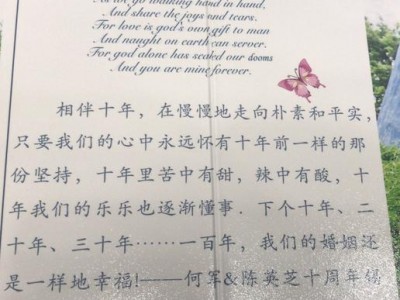 As we go walking hand in hand,
And share the joys and tears.
For love is god's own gift to man
And naught on earth can server.
For god alone has sealed our dooms
And you are mine forever.
相伴十年，在慢慢地走向朴素和平实，
只要我们的心中永远怀有十年前一样的那
份坚持，十年里苦中有甜，辣中有酸，十
年我们的乐乐也逐渐懂事．下个十年、二
十年、三十年……一百年，我们的婚姻还
是一样地幸福!——何军&陈英芝十周年锡